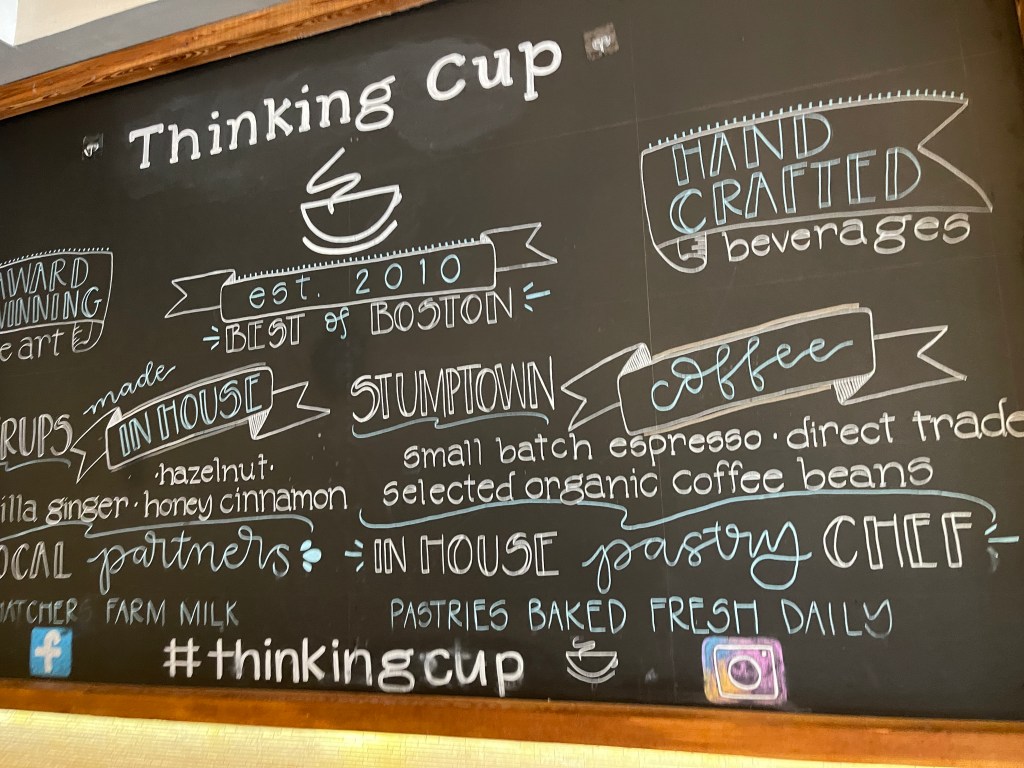 Thinking Cup
est. 2010
BEST of BOSTON
HAND
CRAFTED
beverages
WINNING
art
made
IN HOUSE
·hazelnut·
ginger · honey cinnamon
STUMPTOWN
coffee
small batch espresso · direct trade
selected organic coffee beans
partners
FARM MILK
IN HOUSE pastry CHEF
PASTRIES BAKED FRESH DAILY
f
#thinkingcup